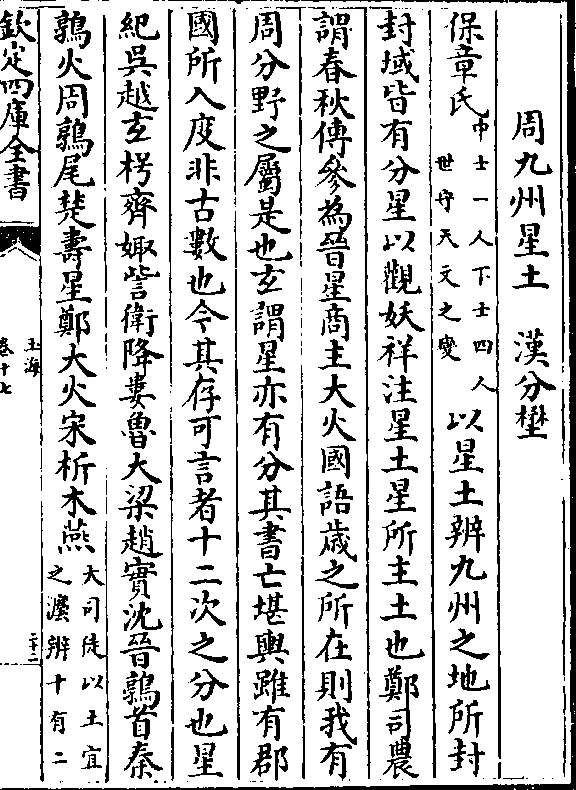 周九州星土　漢分壄
保章氏中士一人下士四人世守天文之變以星土辨九州之地所封
封域皆有分星以觀妖祥注星土星所主土也鄭司農
謂春秋傳參為晉星商主大火國語歲之所在則我有
周分野之屬是也玄謂星亦有分其書亡堪輿雖有郡
國所入度非古數也今其存可言者十二次之分也星
紀吳越玄枵齊娵訾衛降婁魯大梁趙實沈晉鶉首秦
鶉火周鶉尾楚壽星鄭大火宋析木燕大司徒以土宜之灋辨十有二
欽定四庫全書
玉海
卷十七
二十二